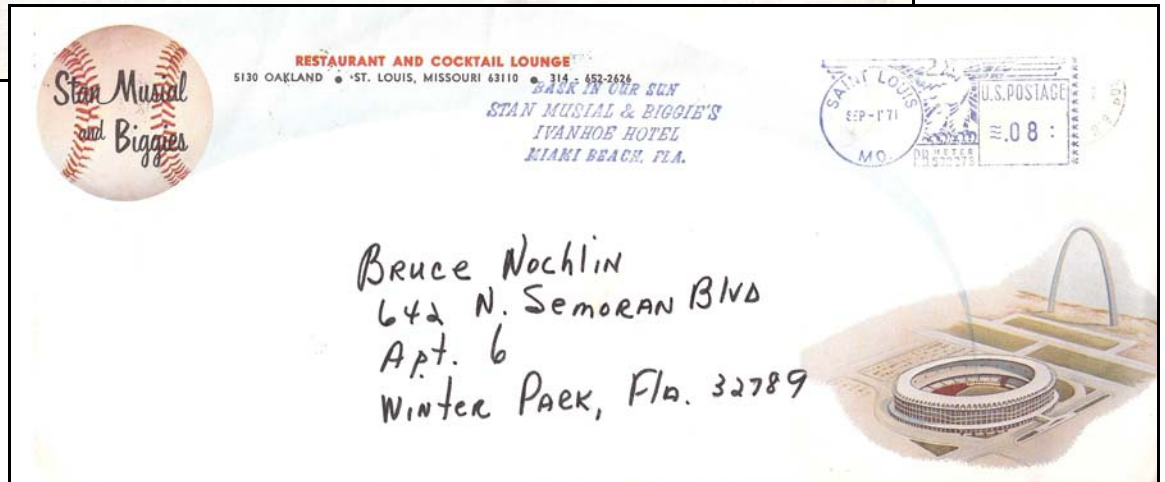 Stan Musial
and Biggies
RESTAURANT AND COCKTAIL LOUNGE
5130 OAKLAND ● ST. LOUIS, MISSOURI 63110 ● 314 - 652-2626
BASK IN OUR SUN
STAN MUSIAL & BIGGIE'S
IVANHOE HOTEL
MIAMI BEACH, FLA.
SAINT LOUIS
SEP-1'71
MO.
U.S.POSTAGE
.08
P.B. METER
Bruce Nochlin
642 N. Semoran Blvd
Apt. 6
Winter Park, Fla. 32789